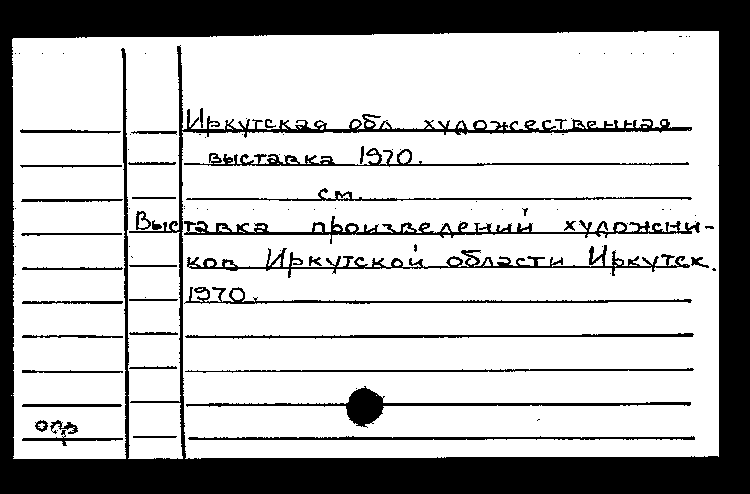 Иркутская обл. художественная
выставка 1970.
см.
Выставка произведений художни-
ков Иркутской области Иркутск.
1970.